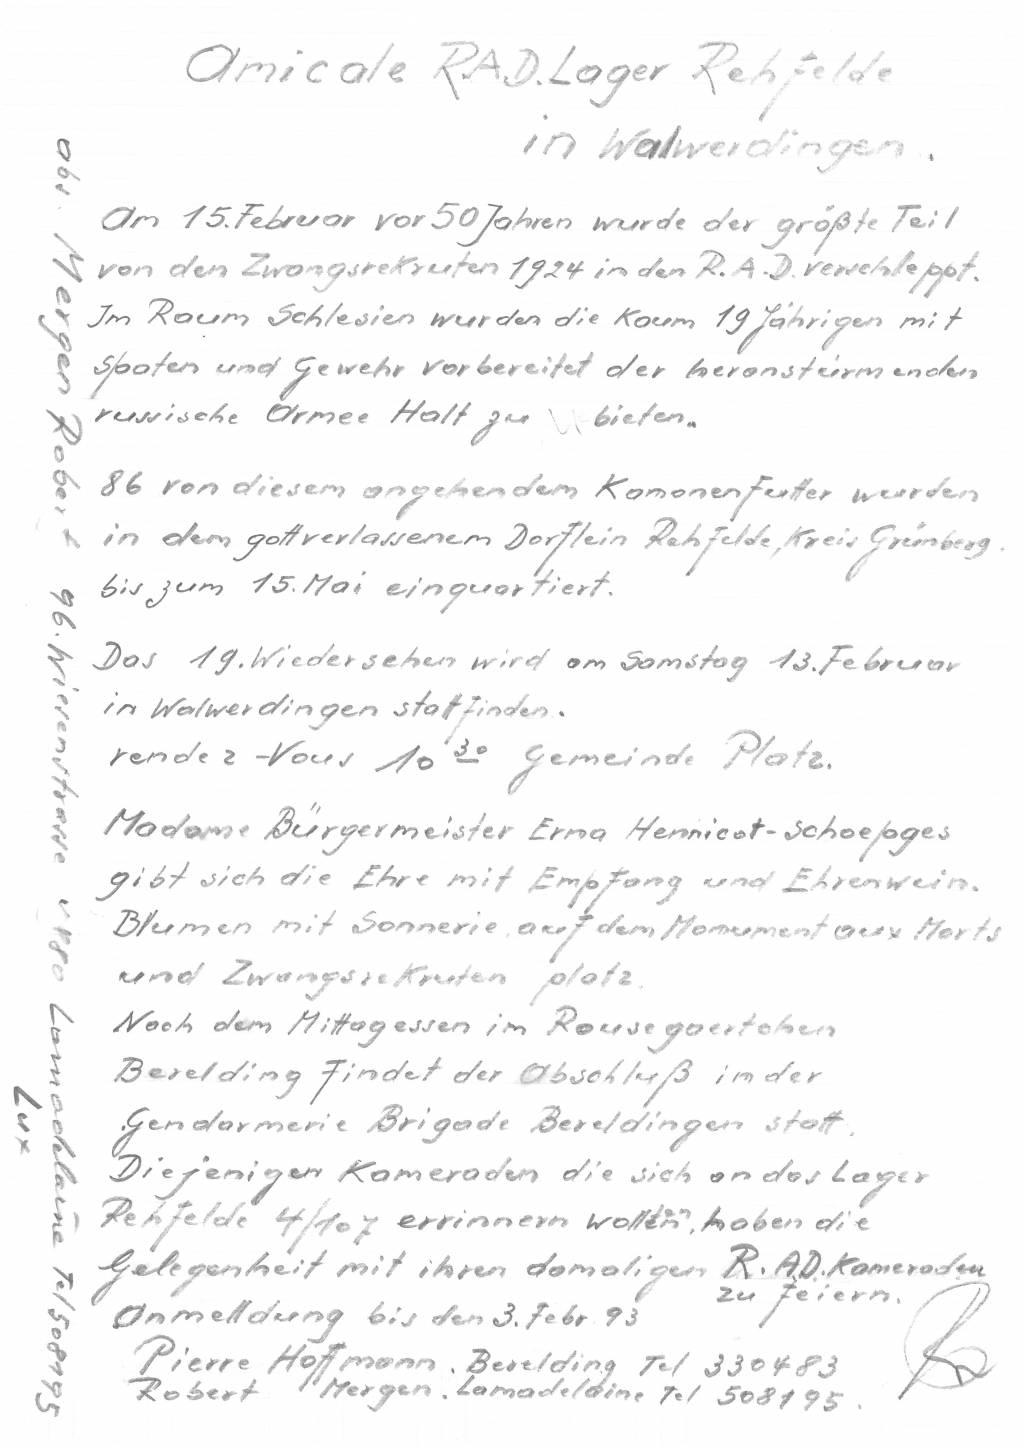 Amicale R.A.D. Lager Rehfelde
in Walwerdingen.
Am 15. Februar vor 50 Jahren wurde der größte Teil
von den Zwangsrekruten 1924 in den R.A.D. verschleppt.
Im Raum Schlesien wurden die kaum 19 Jährigen mit
Spaten und Gewehr vorbereitet der heranstürmenden
russische Armee Halt zu bieten.
86 von diesem angehendem Kanonenfutter wurden
in dem gottverlassenem Dorflein Rehfelde, Kreis Grünberg.
bis zum 15. Mai einquartiert.
Das 19. Wiedersehen wird am Samstag 13. Februar
in Walwerdingen stattfinden.
rendez-Vous 10 30 Gemeinde Platz.
Madame Bürgermeister Erna Hennicot-Schoepges
gibt sich die Ehre mit Empfang und Ehrenwein.
Blumen mit Sonnerie auf dem Monument aux Morts
und Zwangsrekruten platz.
Nach dem Mittagessen im Rousegaertchen
Berelding findet der Abschluß in der
Gendarmerie Brigade Bereldingen statt.
Diejenigen Kameraden die sich an das Lager
Rehfelde 4/107 errinnern wollten, haben die
Gelegenheit mit ihren damaligen R.A.D. Kameraden
zu feiern.
Anmelldung bis den 3. Febr 93
Pierre Hoffmann. Berelding Tel 330483
Robert Mergen. Lamadelaine Tel 508195.
Abs. Mergen Robert 96. Wiesenstrasse 4980 Lamadelaine Tel 508195
Lux